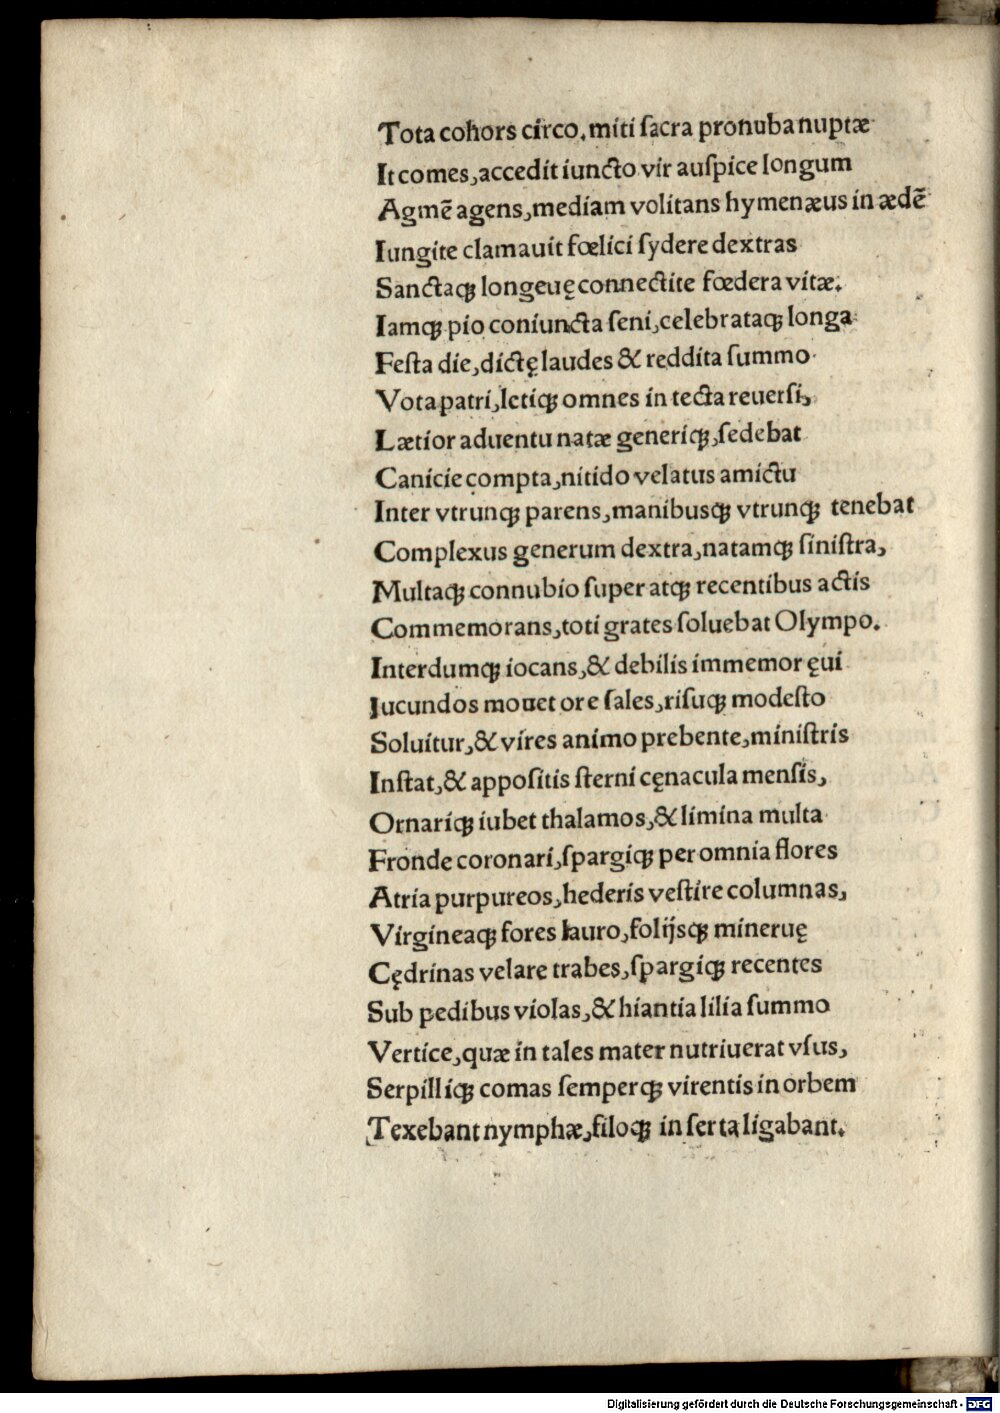 Tota cohors circo, miti ſacra pronuba nuptæ
It comes, accedit iuncto vir auſpice longum
Agmē agens, mediam volitans hymenæus in ædē
Iungite clamauit fœlici ſydere dextras
Sanctaqꝫ longeuę connectite fœdera vitæ.
Iamqꝫ pio coniuncta ſeni, celebrataqꝫ longa
Feſta die, dictę laudes & reddita ſummo
Vota patri, letiqꝫ omnes in tecta reuerſi,
Lætior aduentu natæ generiqꝫ, ſedebat
Canicie compta, nitido velatus amictu
Inter vtrunqꝫ parens, manibusqꝫ vtrunqꝫ tenebat
Complexus generum dextra, natamqꝫ ſiniſtra,
Multaqꝫ connubio ſuper atqꝫ recentibus actis
Commemorans, toti grates ſoluebat Olympo.
Interdumqꝫ iocans, & debilis immemor ęui
Iucundos mouet ore ſales, riſuqꝫ modeſto
Soluitur, & vires animo prebente, miniſtris
Inſtat, & appoſitis ſterni cęnacula menſis,
Ornariqꝫ iubet thalamos, & limina multa
Fronde coronari, ſpargiqꝫ per omnia flores
Atria purpureos, hederis veſtire columnas,
Virgineaqꝫ fores lauro, folijsqꝫ mineruę
Cędrinas velare trabes, ſpargiqꝫ recentes
Sub pedibus violas, & hiantia lilia ſummo
Vertice, quæ in tales mater nutriuerat vſus,
Serpilliqꝫ comas ſemperqꝫ virentis in orbem
Texebant nymphæ, filoqꝫ in ſerta ligabant.
Digitalisierung gefördert durch die Deutsche Forschungsgemeinschaft - DFG